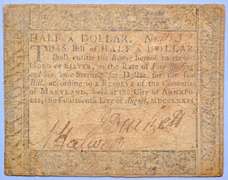 HALF A DOLLAR. No
THIS Bill of HALF A DOLLAR
shall entitle the Bearer hereof to receive
GOLD or SILVER, at the Rate of Four Shillings
and Six-pence Sterling per Dollar for the said
Bill, according to a RESOLVE of the CONVENTION
of MARYLAND, held at the City of ANNAPOLIS,
the Fourteenth Day of August, MDCCLXXVI.